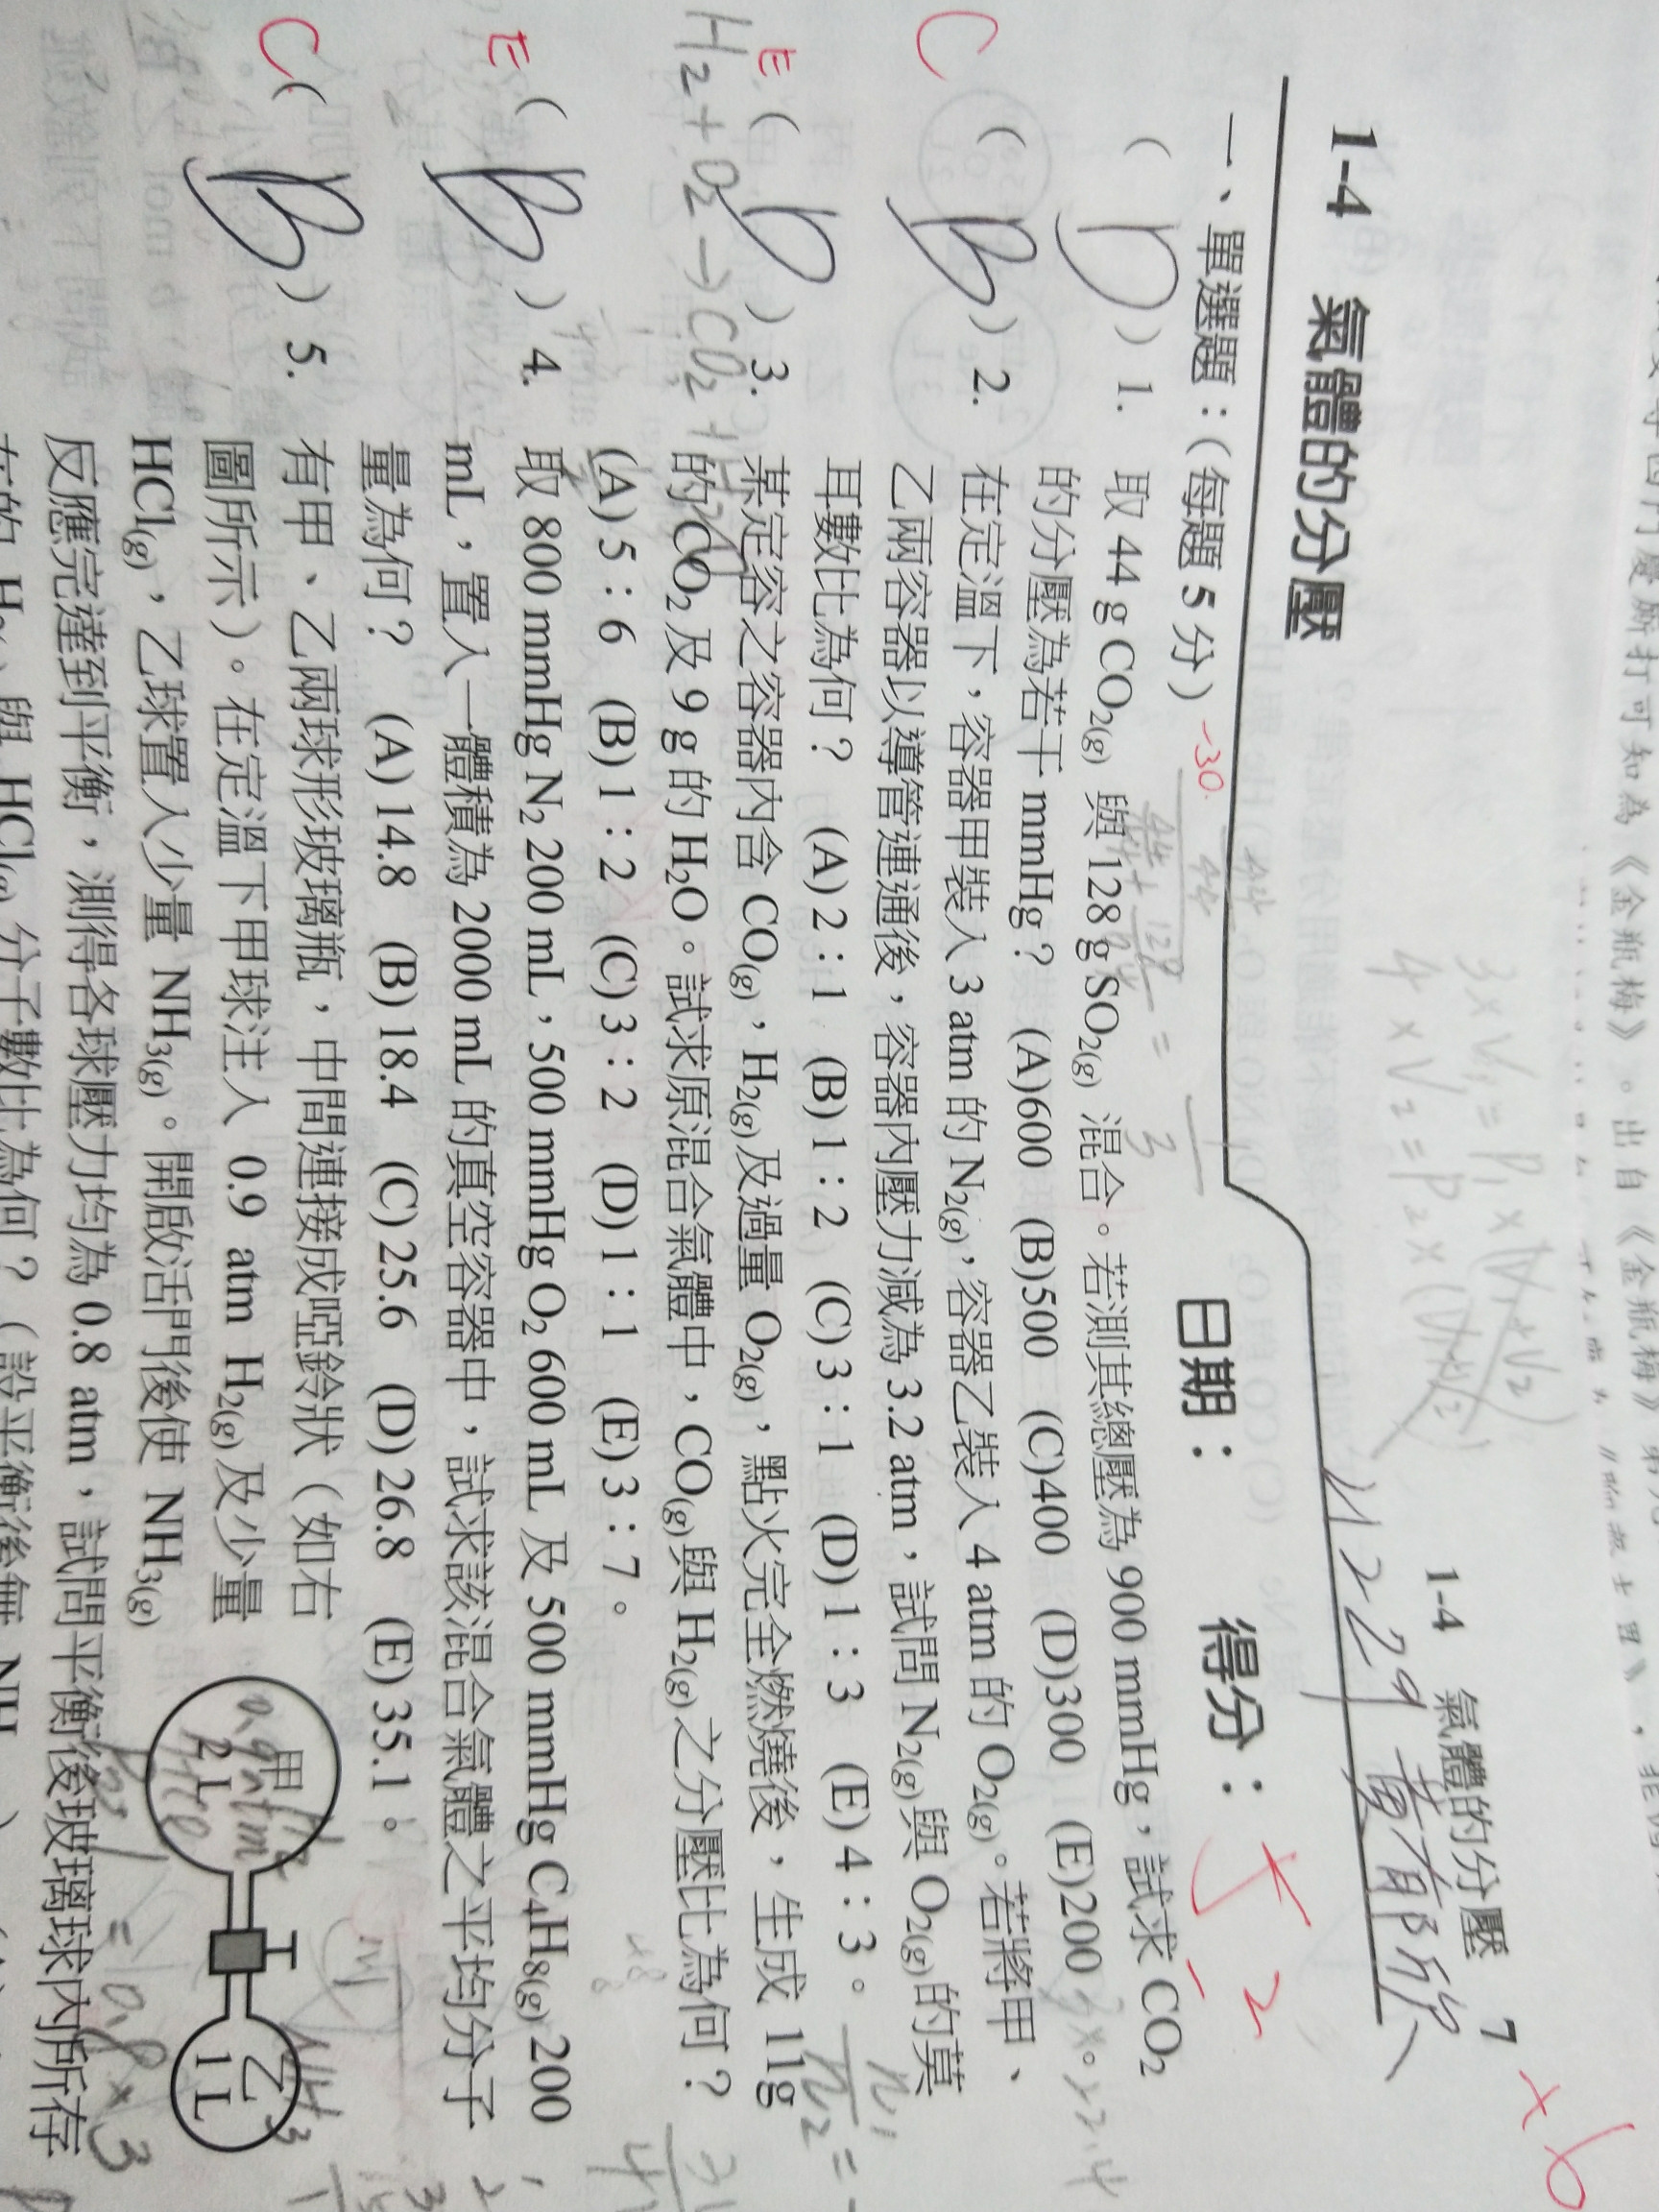 《金瓶梅》。出自《金瓶梅》
1-4 氣體的分壓 7
×6
3×V₁=P₁×(V₁+V₂)
4×V₂=P₂×(V₁+V₂)
1-4 氣體的分壓
11229
日期： 得分： 52
一、單選題：（每題 5 分） -30.
（ D ） 1. 取 44 g CO₂(g) 與 128 g SO₂(g) 混合。若測其總壓為 900 mmHg，試求 CO₂
的分壓為若干 mmHg？ (A)600 (B)500 (C)400 (D)300 (E)200
C （ B ） 2. 在定溫下，容器甲裝入 3 atm 的 N₂(g)，容器乙裝入 4 atm 的 O₂(g)。若將甲、
乙兩容器以導管連通後，容器內壓力減為 3.2 atm，試問 N₂(g)與 O₂(g)的莫
耳數比為何？ (A) 2：1 (B) 1：2 (C) 3：1 (D) 1：3 (E) 4：3。
E （ D ） 3. 某定容之容器內含 CO(g)，H₂(g)及過量 O₂(g)，點火完全燃燒後，生成 11g
的 CO₂ 及 9 g 的 H₂O。試求原混合氣體中，CO(g)與 H₂(g)之分壓比為何？
H₂+O₂→CO₂+H₂O
(A) 5：6 (B) 1：2 (C) 3：2 (D) 1：1 (E) 3：7。
E （ B ） 4. 取 800 mmHg N₂ 200 mL，500 mmHg O₂ 600 mL 及 500 mmHg C₄H₈(g) 200
mL，置入一體積為 2000 mL 的真空容器中，試求該混合氣體之平均分子
量為何？ (A) 14.8 (B) 18.4 (C) 25.6 (D) 26.8 (E) 35.1。
C （ B ） 5. 有甲、乙兩球形玻璃瓶，中間連接成啞鈴狀（如右
圖所示）。在定溫下甲球注入 0.9 atm H₂(g)及少量
HCl(g)，乙球置入少量 NH₃(g)。開啟活門後使 NH₃(g)
反應完達到平衡，測得各球壓力均為 0.8 atm，試問平衡後玻璃球內所存
在的 H₂(g)與 HCl(g)分子數比為何？（設平衡後無 NH
甲
2 L
乙
1 L
0.9atm
HCl
NH₃
=0.8×3